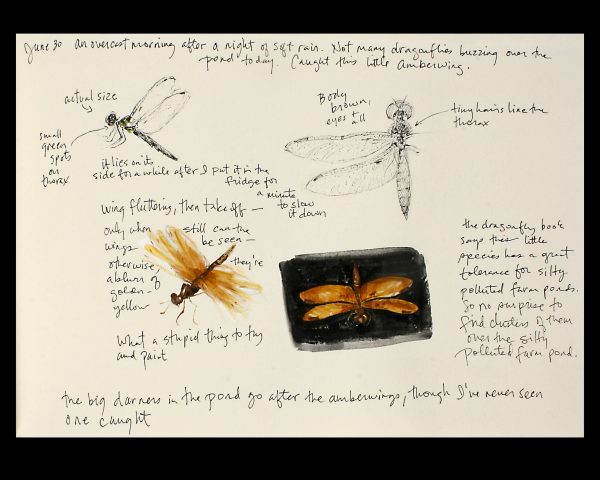 June 30 An overcast morning after a night of soft rain. Not many dragonflies buzzing over the
pond today. Caught this little amberwing.
actual size
small
green
spots
on
thorax
it lies on its
side for a while after I put it in the
fridge for
a minute
to slow
it down
Body
brown,
eyes + all
tiny hairs line the
thorax
wing fluttering, then take off —
only when still can the
wings be seen —
otherwise, they're
a blur of
golden-
yellow
What a stupid thing to try
and paint
the dragonfly book
says this little
species has a great
tolerance for silty
polluted farm ponds.
So no surprise to
find clusters of them
over the silty
polluted farm pond.
the big darners in the pond go after the amberwings, though I've never seen
one caught